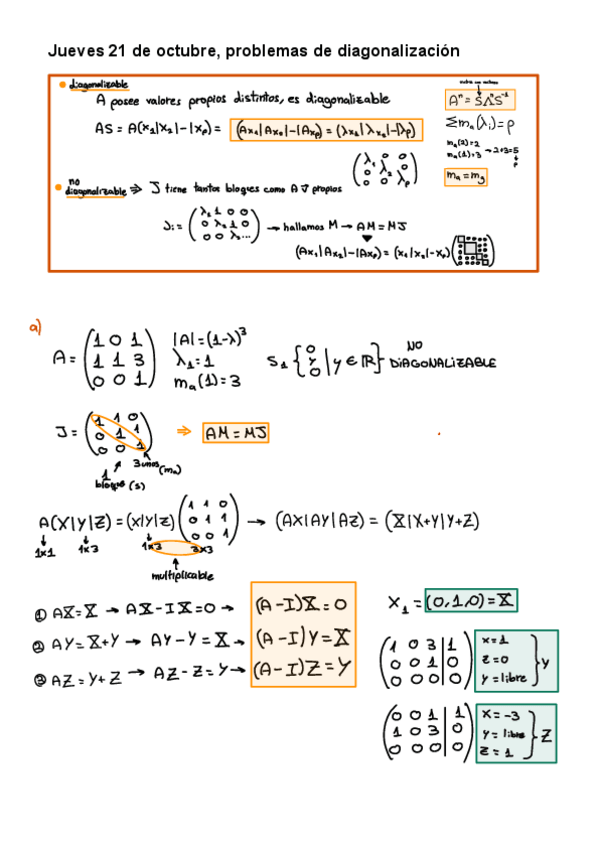 Jueves 21 de octubre, problemas de diagonalización
• diagonalizable
A posee valores propios distintos, es diagonalizable
AS = A(x₁|x₂|-|xp) = (Ax₁|Ax₂|-|Axp) = (λx₁|λx₂|-|λp)
Aⁿ = SΛⁿS⁻¹
Σmₐ(λᵢ) = p
mₐ(2) = 2
mₐ(1) = 3 → 2+3=5
p
mₐ = mg
(λ₁ 0 0
0 λ₂ 0
0 0 λp)
• no diagonalizable ⇒ J tiene tantos bloques como A v propios
Jᵢ = (λ₁ 1 0 0
0 λ₂ 1 0
0 0 λ₃...) → hallamos M → AM = MJ
(Ax₁|Ax₂|-|Axp) = (x₁|x₂|-xp)
a)
A = (1 0 1
1 1 3
0 0 1)
|A| = (1-λ)³
λ₁ = 1
mₐ(1) = 3
S₁ {0 y 0 | y ∈ ℝ} NO DIAGONALIZABLE
J = (1 1 0
0 1 1
0 0 1) ⇒ AM = MJ
3 unos (mₐ)
1 bloque (s)
A(X|Y|Z) = (x|y|z) (1 1 0
0 1 1
0 0 1) → (AX|AY|AZ) = (X|X+Y|Y+Z)
1x1 1x3 1x3 3x3
multiplicable
① AX = X → AX - IX = 0 → (A-I)X = 0
② AY = X+Y → AY - Y = X → (A-I)Y = X
③ AZ = Y+Z → AZ - Z = Y → (A-I)Z = Y
X₁ = (0,1,0) = X
(1 0 3 | 1
0 0 1 | 0
0 0 0 | 0)
x = 1
z = 0
y = libre
Y
(0 0 1 | 1
1 0 3 | 0
0 0 0 | 0)
x = -3
y = libre
z = 1
Z